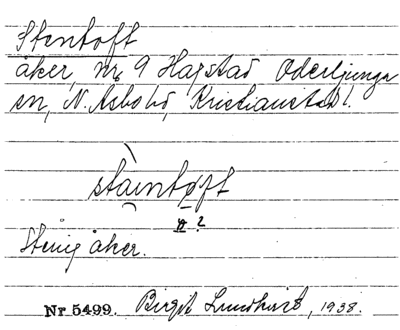 Stentoft
åker, nr 9 Hagstad Oderljunga
sn, N. Åsbo hd, Kristianstad l.
stäintøft
ø ?
Stenig åker.
Nr 5499. Birgit Lundkvist, 1938.